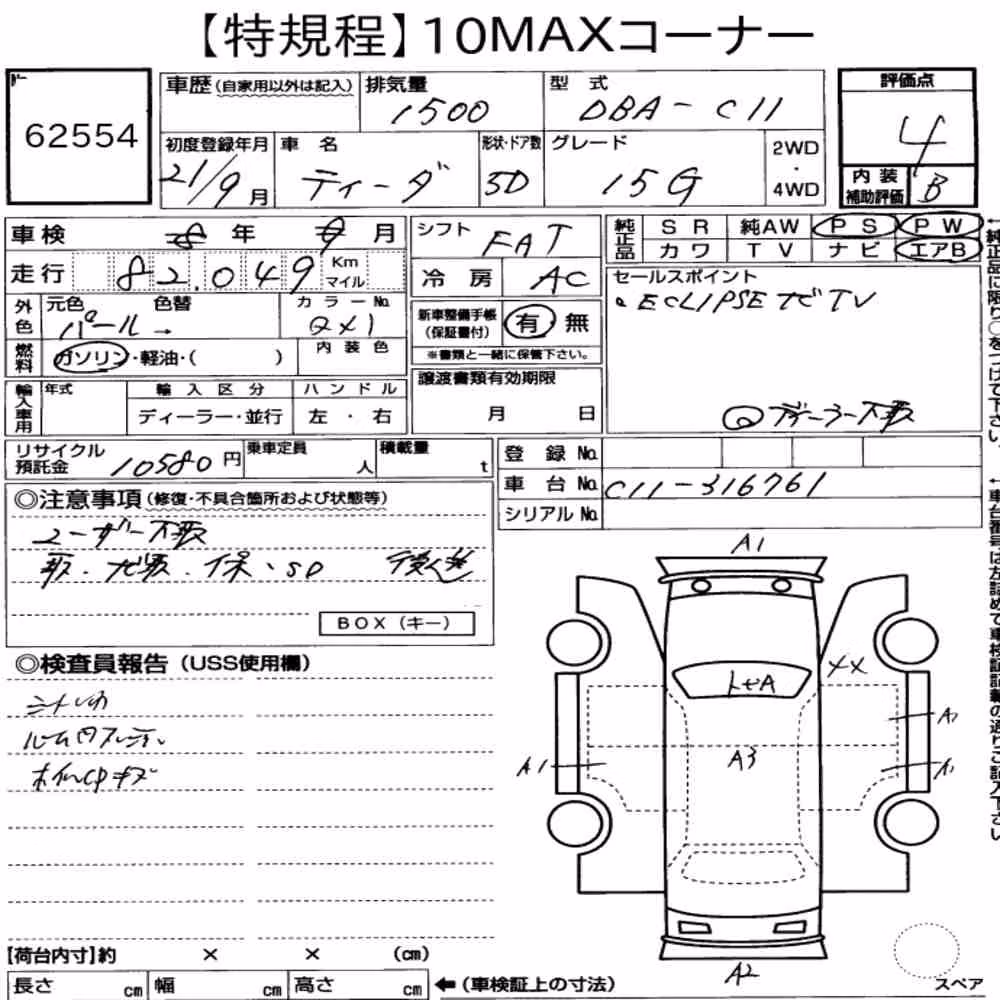 【特規程】10MAXコーナー
62554
車歴(自家用以外は記入)
排気量
1500
型式
DBA-C11
評価点
4
初度登録年月
21/9月
車名
ティーダ
形状・ドア数
5D
グレード
15G
2WD
・
4WD
内装
補助評価
B
車検 年 月
走行 82,049 Km
マイル
シフト
FAT
冷房 AC
純正品
SR 純AW PS PW
カワ TV ナビ エアB
外色
元色 色替
パール→
カラーNo.
QX1
内装色
燃料
ガソリン・軽油・( )
新車整備手帳
(保証書付)
有・無
※書類と一緒に保管下さい。
セールスポイント
・ECLIPSEナビTV
輸入車用
年式
輸入区分
ディーラー・並行
ハンドル
左・右
譲渡書類有効期限
月 日
リサイクル
預託金 10580円
乗車定員
人
積載量
t
登録No.
車台No. C11-316761
シリアルNo.
◎注意事項(修復・不具合箇所および状態等)
ユーザー不取
取・ナビ取・保・SD
BOX(キー)
◎検査員報告(USS使用欄)
A1
XX
トセA
A1
A3
A2
【荷台内寸】約 × × (cm)
長さ cm 幅 cm 高さ cm
←(車検証上の寸法)
スペア
←純正品に限り○をつけて下さい。
←車台番号は左詰めで車検証記載の通りご記入下さい。